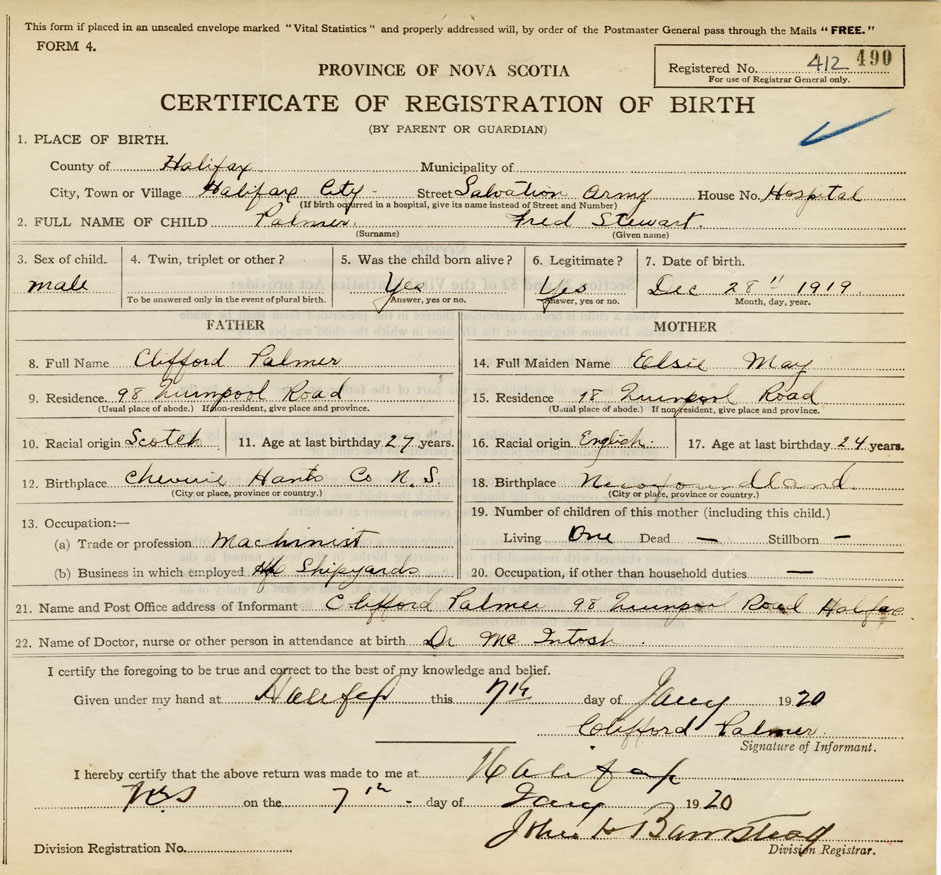 This form if placed in an unsealed envelope marked "Vital Statistics" and properly addressed will, by order of the Postmaster General pass through the Mails "FREE."
FORM 4.
Registered No. 412 490
For use of Registrar General only.
PROVINCE OF NOVA SCOTIA
CERTIFICATE OF REGISTRATION OF BIRTH
(BY PARENT OR GUARDIAN)
1. PLACE OF BIRTH.
County of Halifax Municipality of
City, Town or Village Halifax City - Street Salvation Army House No. Hospital
(If birth occurred in a hospital, give its name instead of Street and Number)
2. FULL NAME OF CHILD Palmer Fred Stewart.
(Surname) (Given name)
3. Sex of child. 4. Twin, triplet or other? 5. Was the child born alive? 6. Legitimate? 7. Date of birth.
male Yes Yes Dec 28" 1919
To be answered only in the event of plural birth. Answer, yes or no. Answer, yes or no. Month, day, year.
FATHER MOTHER
8. Full Name Clifford Palmer 14. Full Maiden Name Elsie May
9. Residence. 98 Quinpool Road 15. Residence 98 Quinpool Road
(Usual place of abode.) If non-resident, give place and province. (Usual place of abode.) If nonresident, give place and province.
10. Racial origin Scotch 11. Age at last birthday 27 years. 16. Racial origin English 17. Age at last birthday 24 years.
12. Birthplace Hants Co N.S. 18. Birthplace Newfoundland
(City or place, province or country.) (City or place, province or country.)
19. Number of children of this mother (including this child.)
13. Occupation:—
(a) Trade or profession Machinist Living One Dead — Stillborn —
(b) Business in which employed Shipyards 20. Occupation, if other than household duties —
21. Name and Post Office address of Informant Clifford Palmer 98 Quinpool Road Halifax
22. Name of Doctor, nurse or other person in attendance at birth Dr McIntosh.
I certify the foregoing to be true and correct to the best of my knowledge and belief.
Given under my hand at Halifax this 7th day of Jany 1920
Clifford Palmer
Signature of Informant.
I hereby certify that the above return was made to me at Halifax
N.S on the 7th - day of Jany 1920
John H Barnstead
Division Registration No. Division Registrar.